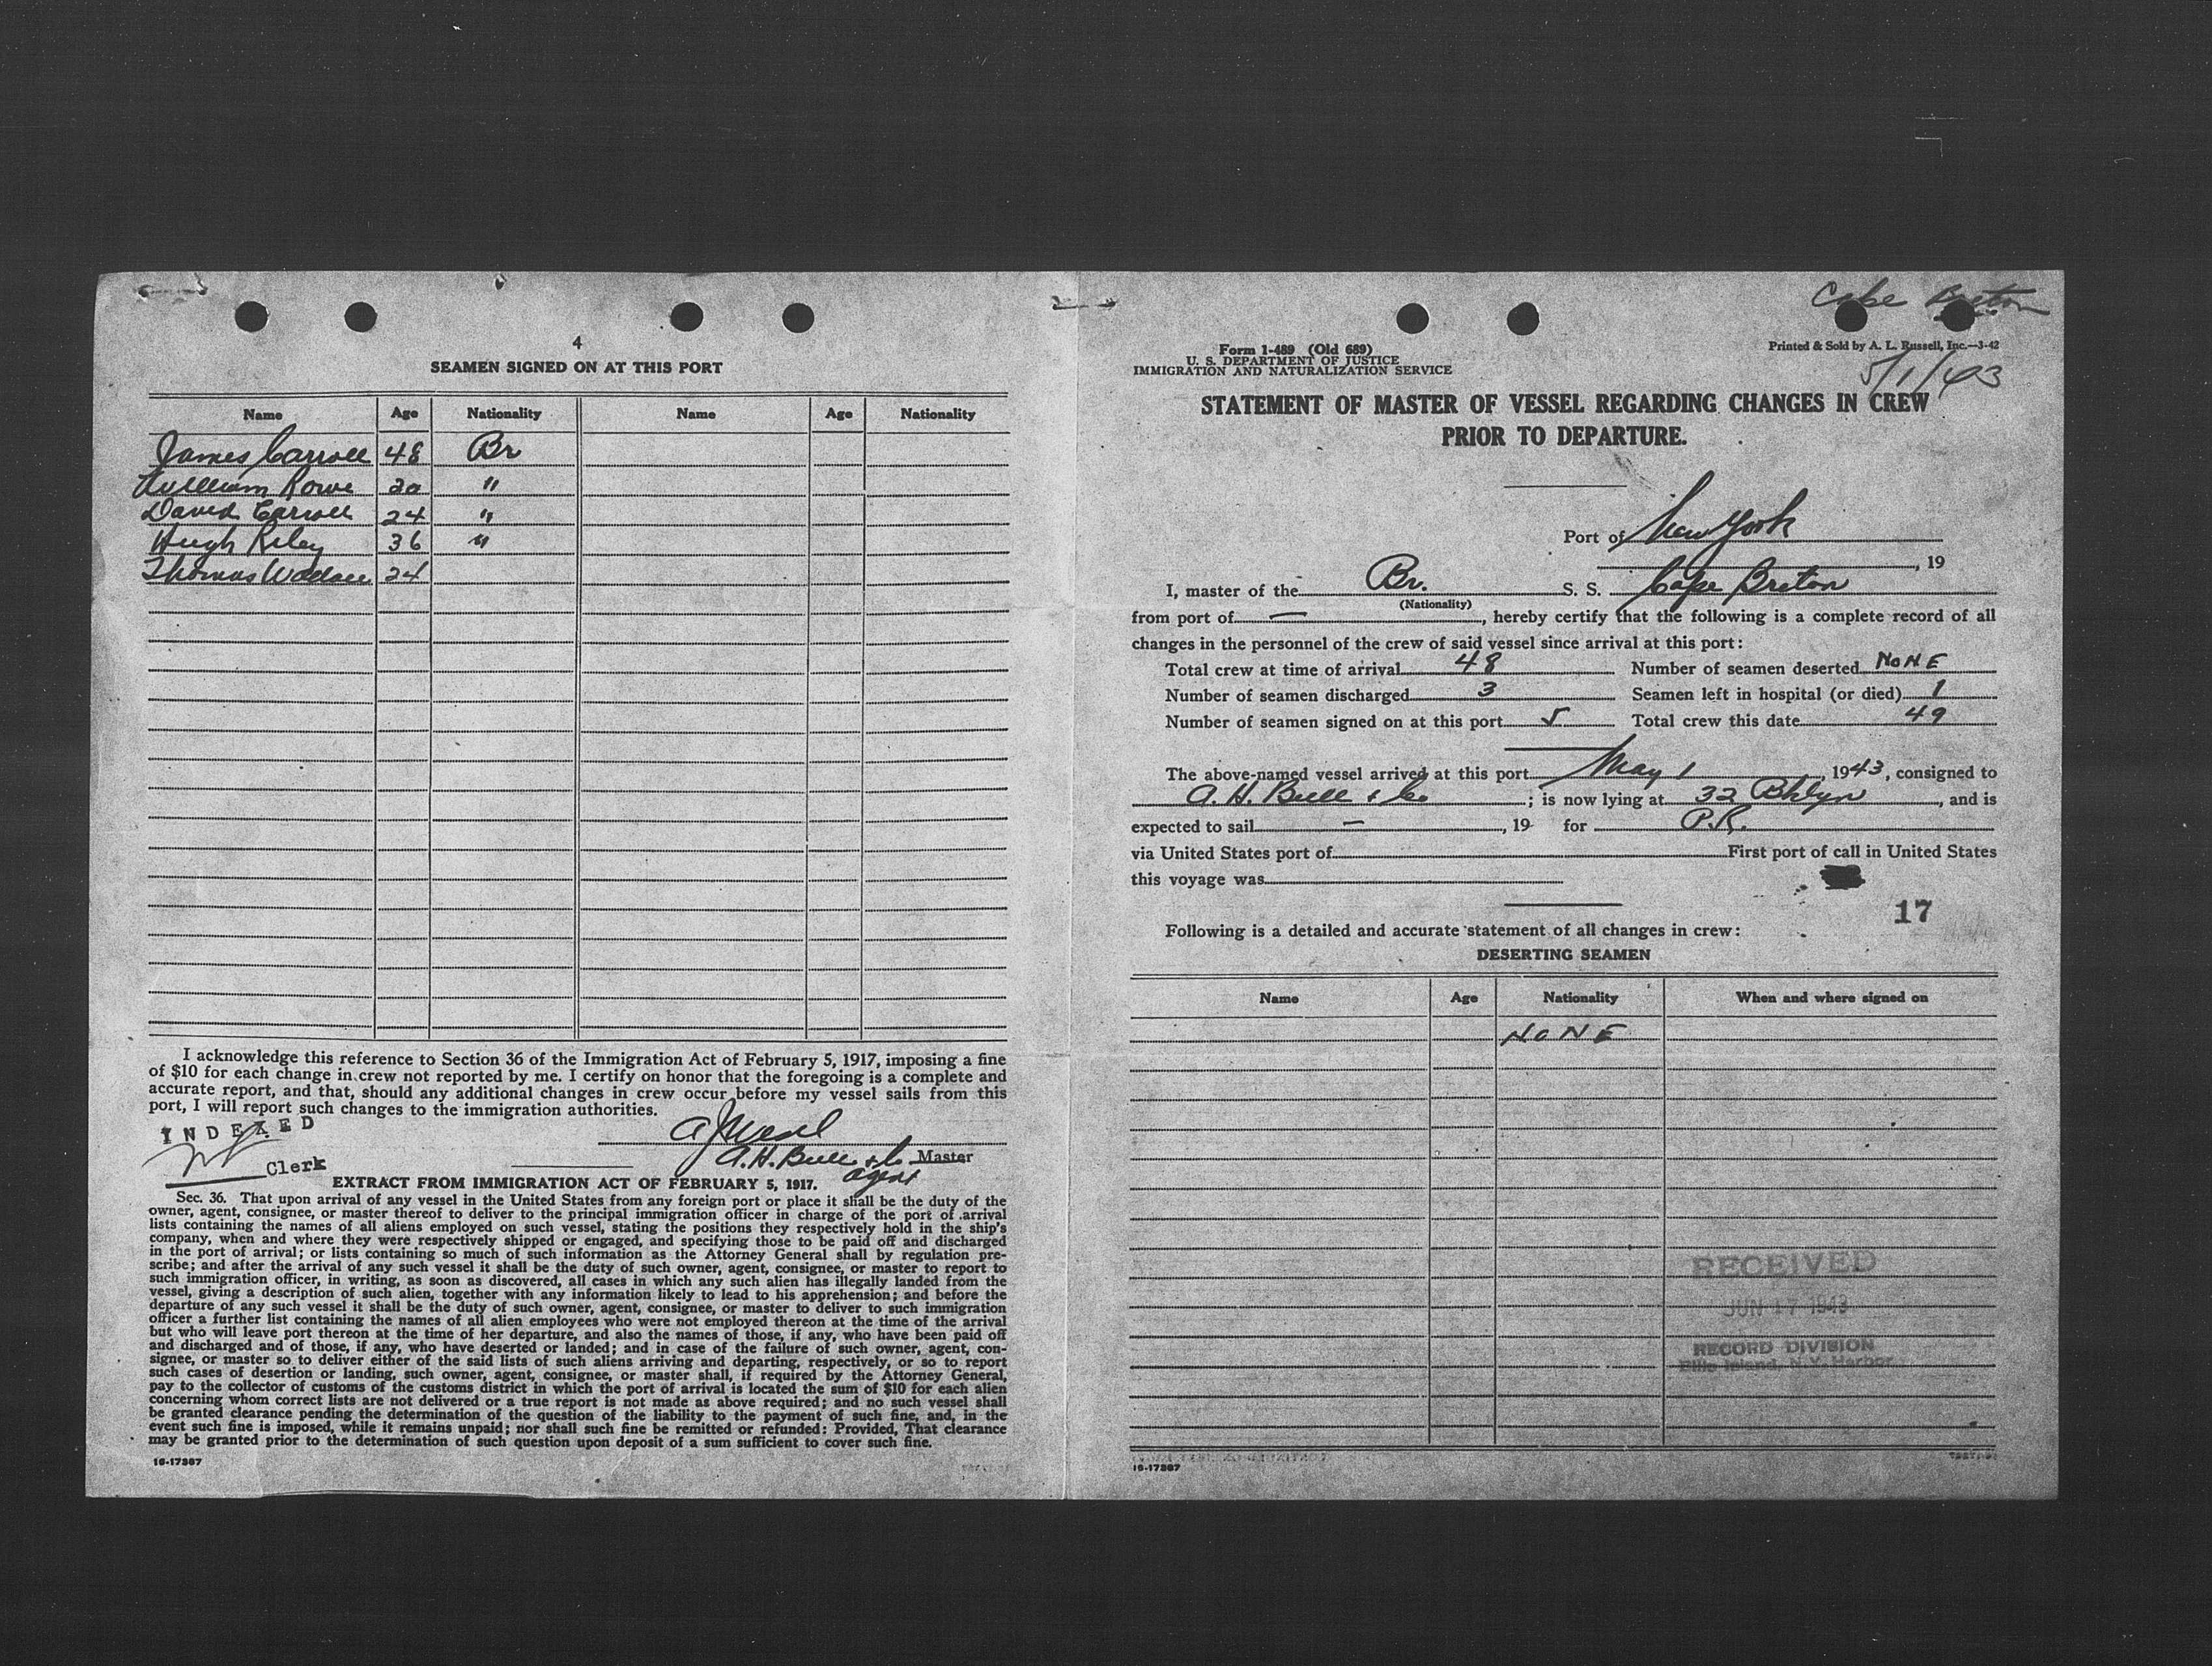 4
SEAMEN SIGNED ON AT THIS PORT
Name Age Nationality Name Age Nationality
James Carroll 48 Br
William Rowe 20 "
David Carroll 24 "
Hugh Riley 36 "
Thomas Wallace 24
I acknowledge this reference to Section 36 of the Immigration Act of February 5, 1917, imposing a fine
of $10 for each change in crew not reported by me. I certify on honor that the foregoing is a complete and
accurate report, and that, should any additional changes in crew occur before my vessel sails from this
port, I will report such changes to the immigration authorities.
INDEXED
A.H. Bull & Co Master
Clerk
agent
EXTRACT FROM IMMIGRATION ACT OF FEBRUARY 5, 1917.
Sec. 36. That upon arrival of any vessel in the United States from any foreign port or place it shall be the duty of the
owner, agent, consignee, or master thereof to deliver to the principal immigration officer in charge of the port of arrival
lists containing the names of all aliens employed on such vessel, stating the positions they respectively hold in the ship's
company, when and where they were respectively shipped or engaged, and specifying those to be paid off and discharged
in the port of arrival; or lists containing so much of such information as the Attorney General shall by regulation pre-
scribe; and after the arrival of any such vessel it shall be the duty of such owner, agent, consignee, or master to report to
such immigration officer, in writing, as soon as discovered, all cases in which any such alien has illegally landed from the
vessel, giving a description of such alien, together with any information likely to lead to his apprehension; and before the
departure of any such vessel it shall be the duty of such owner, agent, consignee, or master to deliver to such immigration
officer a further list containing the names of all alien employees who were not employed thereon at the time of the arrival
but who will leave port thereon at the time of her departure, and also the names of those, if any, who have been paid off
and discharged and of those, if any, who have deserted or landed; and in case of the failure of such owner, agent, con-
signee, or master so to deliver either of the said lists of such aliens arriving and departing, respectively, or so to report
such cases of desertion or landing, such owner, agent, consignee, or master shall, if required by the Attorney General,
pay to the collector of customs of the customs district in which the port of arrival is located the sum of $10 for each alien
concerning whom correct lists are not delivered or a true report is not made as above required; and no such vessel shall
be granted clearance pending the determination of the question of the liability to the payment of such fine, and, in the
event such fine is imposed, while it remains unpaid; nor shall such fine be remitted or refunded: Provided, That clearance
may be granted prior to the determination of such question upon deposit of a sum sufficient to cover such fine.
16-17367
Cape Breton
Form 1-489 (Old 689)
U. S. DEPARTMENT OF JUSTICE
IMMIGRATION AND NATURALIZATION SERVICE
Printed & Sold by A. L. Russell, Inc.—3-42
5/1/43
STATEMENT OF MASTER OF VESSEL REGARDING CHANGES IN CREW
PRIOR TO DEPARTURE.
Port of New York
, 19
I, master of the Br. S. S. Cape Breton
(Nationality)
from port of —, hereby certify that the following is a complete record of all
changes in the personnel of the crew of said vessel since arrival at this port:
Total crew at time of arrival 48 Number of seamen deserted NONE
Number of seamen discharged 3 Seamen left in hospital (or died) 1
Number of seamen signed on at this port 5 Total crew this date 49
The above-named vessel arrived at this port May 1, 1943, consigned to
A. H. Bull & Co; is now lying at 32 Bklyn, and is
expected to sail —, 19 for P.R.
via United States port of First port of call in United States
this voyage was
17
Following is a detailed and accurate statement of all changes in crew:
DESERTING SEAMEN
Name Age Nationality When and where signed on
NONE
RECEIVED
JUN 17 1943
RECORD DIVISION
Ellis Island, N.Y. Harbor
16-17367